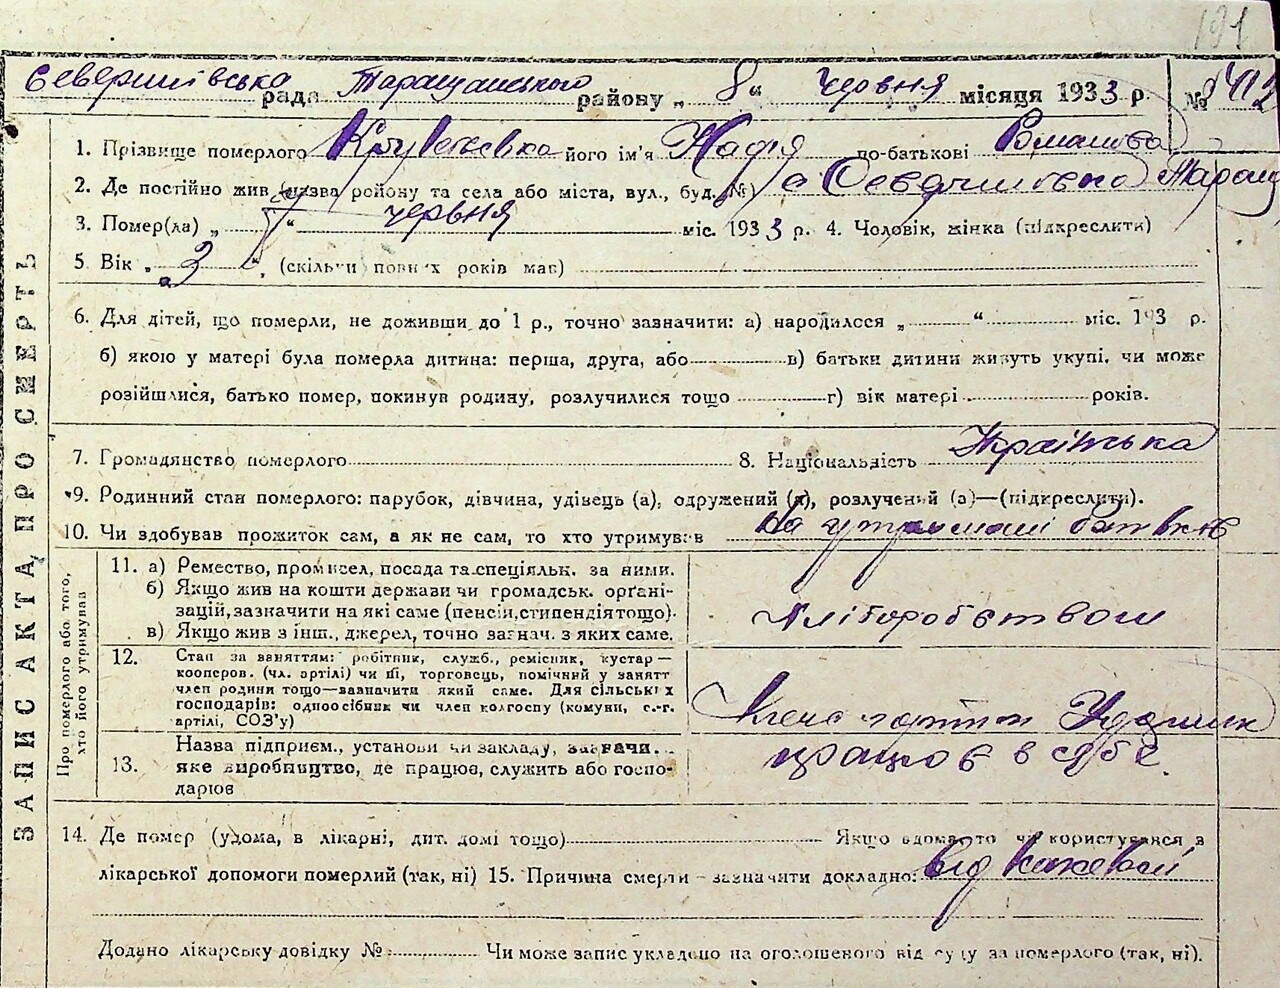 191
Северинівська рада Таращанського району „ 8 “ червня місяця 1933 р. №
1. Прізвище померлого його ім'я Надія по-батькові Романова
2. Де постійно жив (назва району та села або міста, вул., буд. №) с Северинівка Таращ
3. Помер(ла) „ 7 “ червня міс. 1933 р. 4. Чоловік, жінка (підкреслити)
5. Вік „ 3 “, (скільки повних років мав)
6. Для дітей, що померли, не доживши до 1 р., точно зазначити: а) народилося „ “ міс. 193 р.
б) якою у матері була померла дитина: перша, друга, або в) батьки дитини живуть укупі, чи може
розійшлися, батько помер, покинув родину, розлучилися тощо г) вік матері років.
7. Громадянство померлого 8. Національність Українська
9. Родинний стан померлого: парубок, дівчина, удівець (а), одружений (а), розлучений (а)—(підкреслити).
10. Чи здобував прожиток сам, а як не сам, то хто утримував на утриманні батьків
11. а) Ремество, промисел, посада та спеціяльк. за ними.
б) Якщо жив на кошти держави чи громадськ. органі-
зацій, зазначити на які саме (пенсія, стипендія тощо).
в) Якщо жив з інш., джерел, точно зазнач. з яких саме.
хліборобством
12. Стан за заняттям: робітник, служб., ремісник, кустар—
кооперов. (чл. артілі) чи ні, торговець, помічний у занятт
член родини тощо—зазначити який саме. Для сільських
господарів: одноосібник чи член колгоспу (комуни, с.-г.
артілі, СОЗ'у)
13. Назва підприєм., установи чи закладу, зазначи..
яке виробництво, де працює, служить або госпо-
дарює
працює в себе
14. Де помер (удома, в лікарні, дит. домі тощо) Якщо вдома, то чи користувався з
лікарської допомоги померлий (так, ні) 15. Причина смерти - зазначити докладно: від
Додано лікарську довідку № Чи може запис укладено на оголошеного від суду за померлого (так, ні).
ЗАПИС АКТА ПРО СМЕРТЬ
Про померлого або того,
хто його утримував